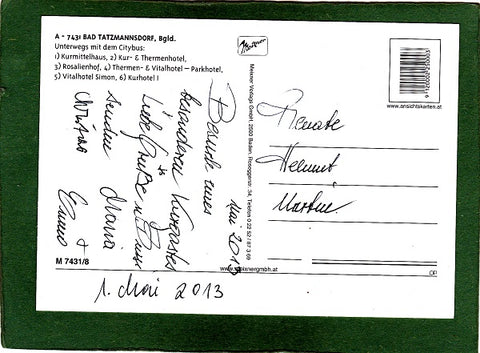 A - 7431 BAD TATZMANNSDORF, Bgld.
Unterwegs mit dem Citybus:
1) Kurmittelhaus, 2) Kur- & Thermenhotel,
3) Rosalienhof, 4) Thermen- & Vitalhotel – Parkhotel,
5) Vitalhotel Simon, 6) Kurhotel I
Besuch eines
besonderen Kurgastes
Mai 2013
Liebe Grüße
senden Maria
Christine
M 7431/8
1. Mai 2013
Meixner Verlags GmbH, 2500 Baden, Roseggerstr. 34, Telefon 0 22 52 / 87 3 69
www.meixnergmbh.at
Renate
Helmut
Martin
www.ansichtskarten.at